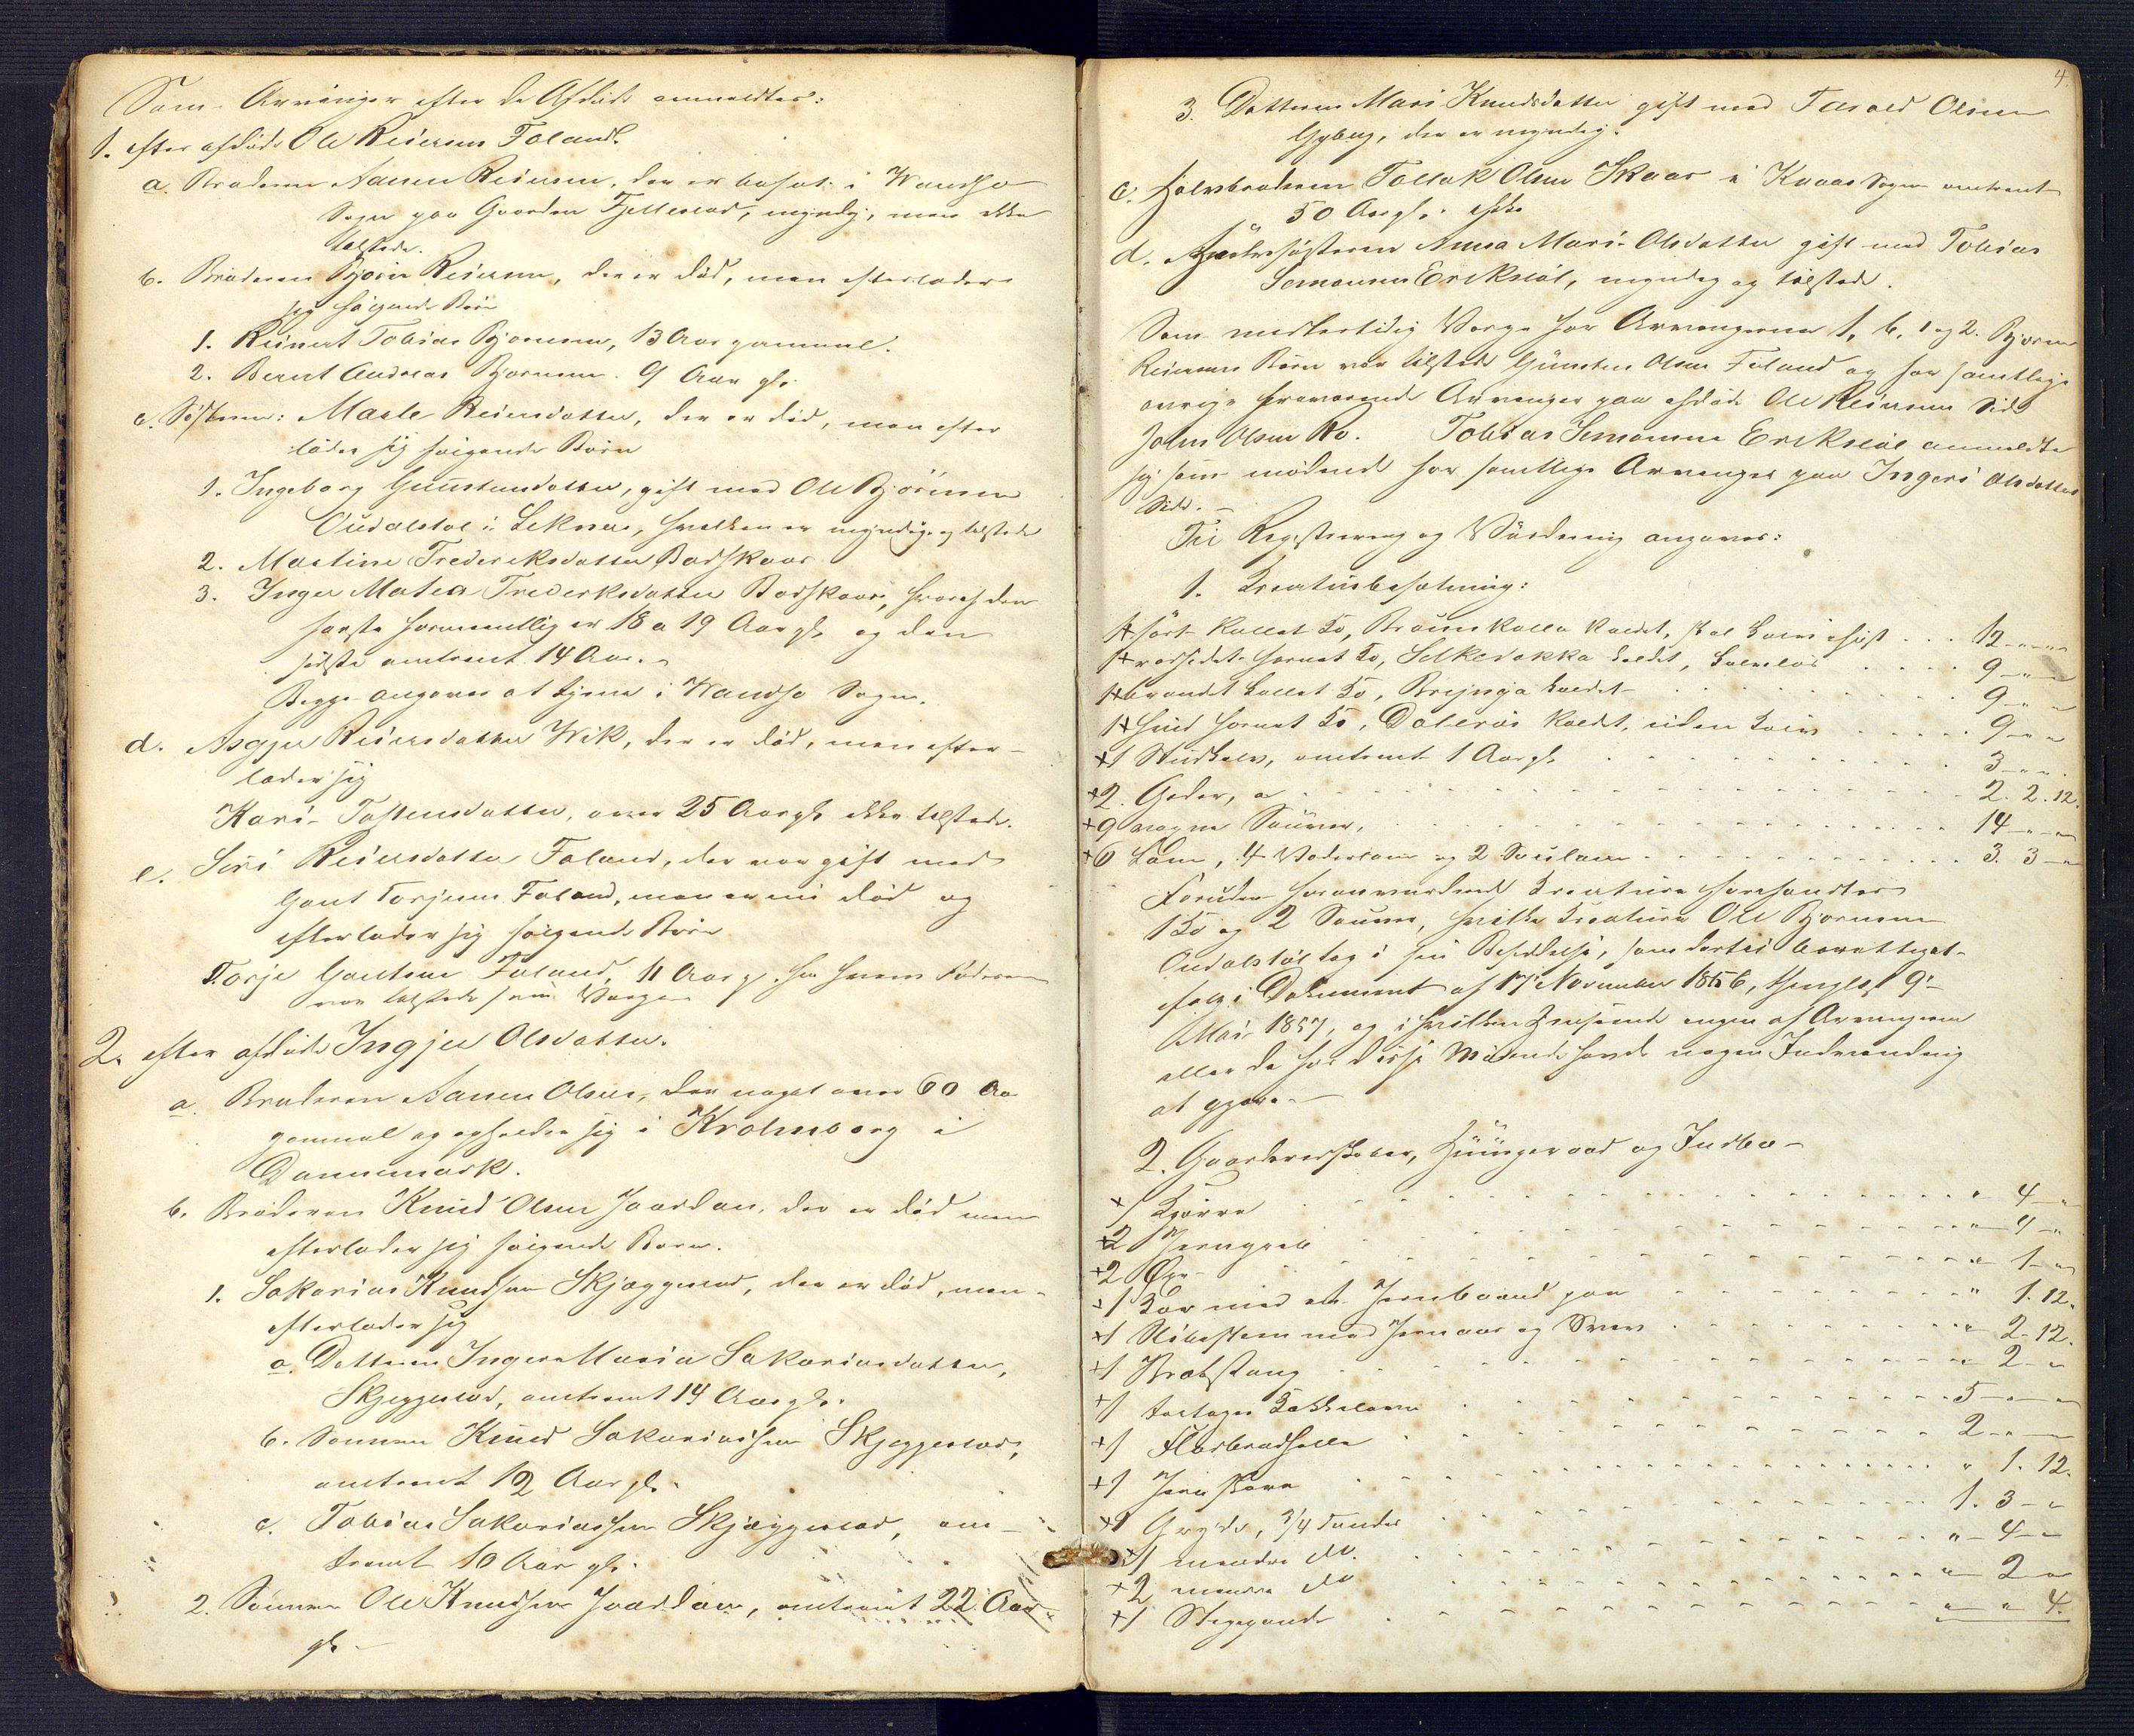 Som Arvinger efter de Afdøde anmeldtes:
1. efter afdøde Ole Reiersen Foland.
a. Broderen Aanen Reiersen, der er bosat i Wandsø
Sogn paa Gaarden Fjellestad, myndig, men ikke
tilstede.
b. Broderen Bjørn Reiersen, der er død, men efterlader
sig følgende Børn
1. Reinert Tobias Bjornsen, 13 Aar gammel.
2. Bernt Andreas Bjornsen. 9 Aar gl.
c. Søsteren: Marte Reiersdatter, der er død, men efter
lader sig følgende Børn
1. Ingeborg Gunstensdatter, gift med Ole Bjørnsen
Oudalstøl i Seknes, hvilken er myndig og tilstede
2. Martine Frederiksdatter Bodskaar
3. Inger Matea Frederiksdatter Bodskaar, hvoraf den
første formentlig er 18 a 19 Aar gl. og den
sidste omtrent 14 Aar.
Begge angaves at tjene i Wandsø Sogn.
d. Asgjer Reiersdatter Wik, der er død, men efter-
lader sig
Kari Tostensdatter, over 25 Aar gl. ikke tilstede.
e. Siri Reiersdatter Foland, der var gift med
Gaut Torjusen Foland, men er nu død og
efterlader sig følgende Børn
Torje Gautsen Foland, 11 Aar g. for hvem Faderen
var tilstede som Værge
2. efter afdøde Ingjer Olsdatter.
a. Broderen Aanen Olsen, der noget over 60 Aar
gammel og opholder sig i Kroknborg i
Dannemark.
b. Broderen Knud Olsen Jaardan, der er død men
efterlader sig følgende Børn.
1. Sakarias Knudsen Skjæggestad, der er død, men
efterlader sig
a. Datteren Inger Maria Sakariasdatter,
Skjeggestad, omtrent 14 Aar gl.
b. Sønnen Knud Sakariassen Skjeggestad,
omtrent 12 Aar gl.
c. Tobias Sakariassen Skjæggestad, om-
trent 10 Aar gl.
2. Sønnen Ole Knudsen Jaardan, omtrent 22 Aar
gl.
4.
3. Datteren Mari Knudsdatter gift med Tarald Olsen
Gyberg, der er myndig.
c. Halvbroderen Tollak Olsen Skaar i Kvaas Sogn omtrent
50 Aar gl.
d. Halvsøsteren Anna Mari Olsdatter gift med Tobias
Simonsen Eriksøl, myndig og tilstede.
Som midlertidig Værge for Arvingerne 1, b, 1 og 2. Bjørn
Reiersens Børn var tilstede Gunsten Olsen Foland og for samtlige
øvrige fraværende Arvinger paa afdøde Ole Reiersens Side
John Olsen Ro. Tobias Simonsen Eriksøl anmeldte
sig som mødende for samtlige Arvinger paa Ingeri Olsdatters
Side.
Til Registrering og Vurdering angaves:
1. Kreaturbesætning:
1 sort kollet Ko, Brunkolla kaldet, skal kalve i høst . . . 12 - " - "
1 rødsidet hornet Ko, Silkedokka kaldet, kalvløs . . . 9 - " - "
1 brandet kollet Ko, Brejnja kaldet . . . 9 - " - "
1 hvid hornet Ko, Dalerøs kaldet, uden Kalv . . . 9 - " - "
1 Studkalv, omtrent 1 Aar gl. . . . 3 - " - "
2. Geder, a . . . 2. 2. 12.
9 voxne Souver, . . . 14 - " - "
6 Lam, 4 Væderlam og 2 Soulam . . . 3. 3 - "
Foruden foranværende Kreature forefandtes
1 Ko og 2 Souver, hvilke Kreature Ole Bjornsen
Oudalstøl tog i sin Besiddelse, som dertil berettiget
ifølge Dokument af 17 November 1856, thinglæst 9
Mai 1857, og i hvilken Henseende ingen af Arvingerne
eller de for disse Mødende havde nogen Indvending
at gjøre.
2. Gaardsredskaber, Huusgeraad og Indbo
1 Kjærre . . . " 4 - "
2 Jerngreb . . . " 4 - "
2 Øxe . . . " 1 - "
1 Kar med et Jernbaand paa . . . " 1. 12.
1 Slibesteen med Jernaas og Sveiv . . . " 2. 12.
1 Brætstang . . . " 2 - "
1 toetages Kakkelovn . . . 5 - " - "
1 Fladbrødhelle . . . 2 - " - "
1 Jernskovl . . . " 1. 12.
1 Gryde, 3/4 Tønde . . . 1. 3 - "
1 mindre do. . . . " 4 - "
2 mindre do . . . " 2 - "
1 Stegepande . . . " " 4.